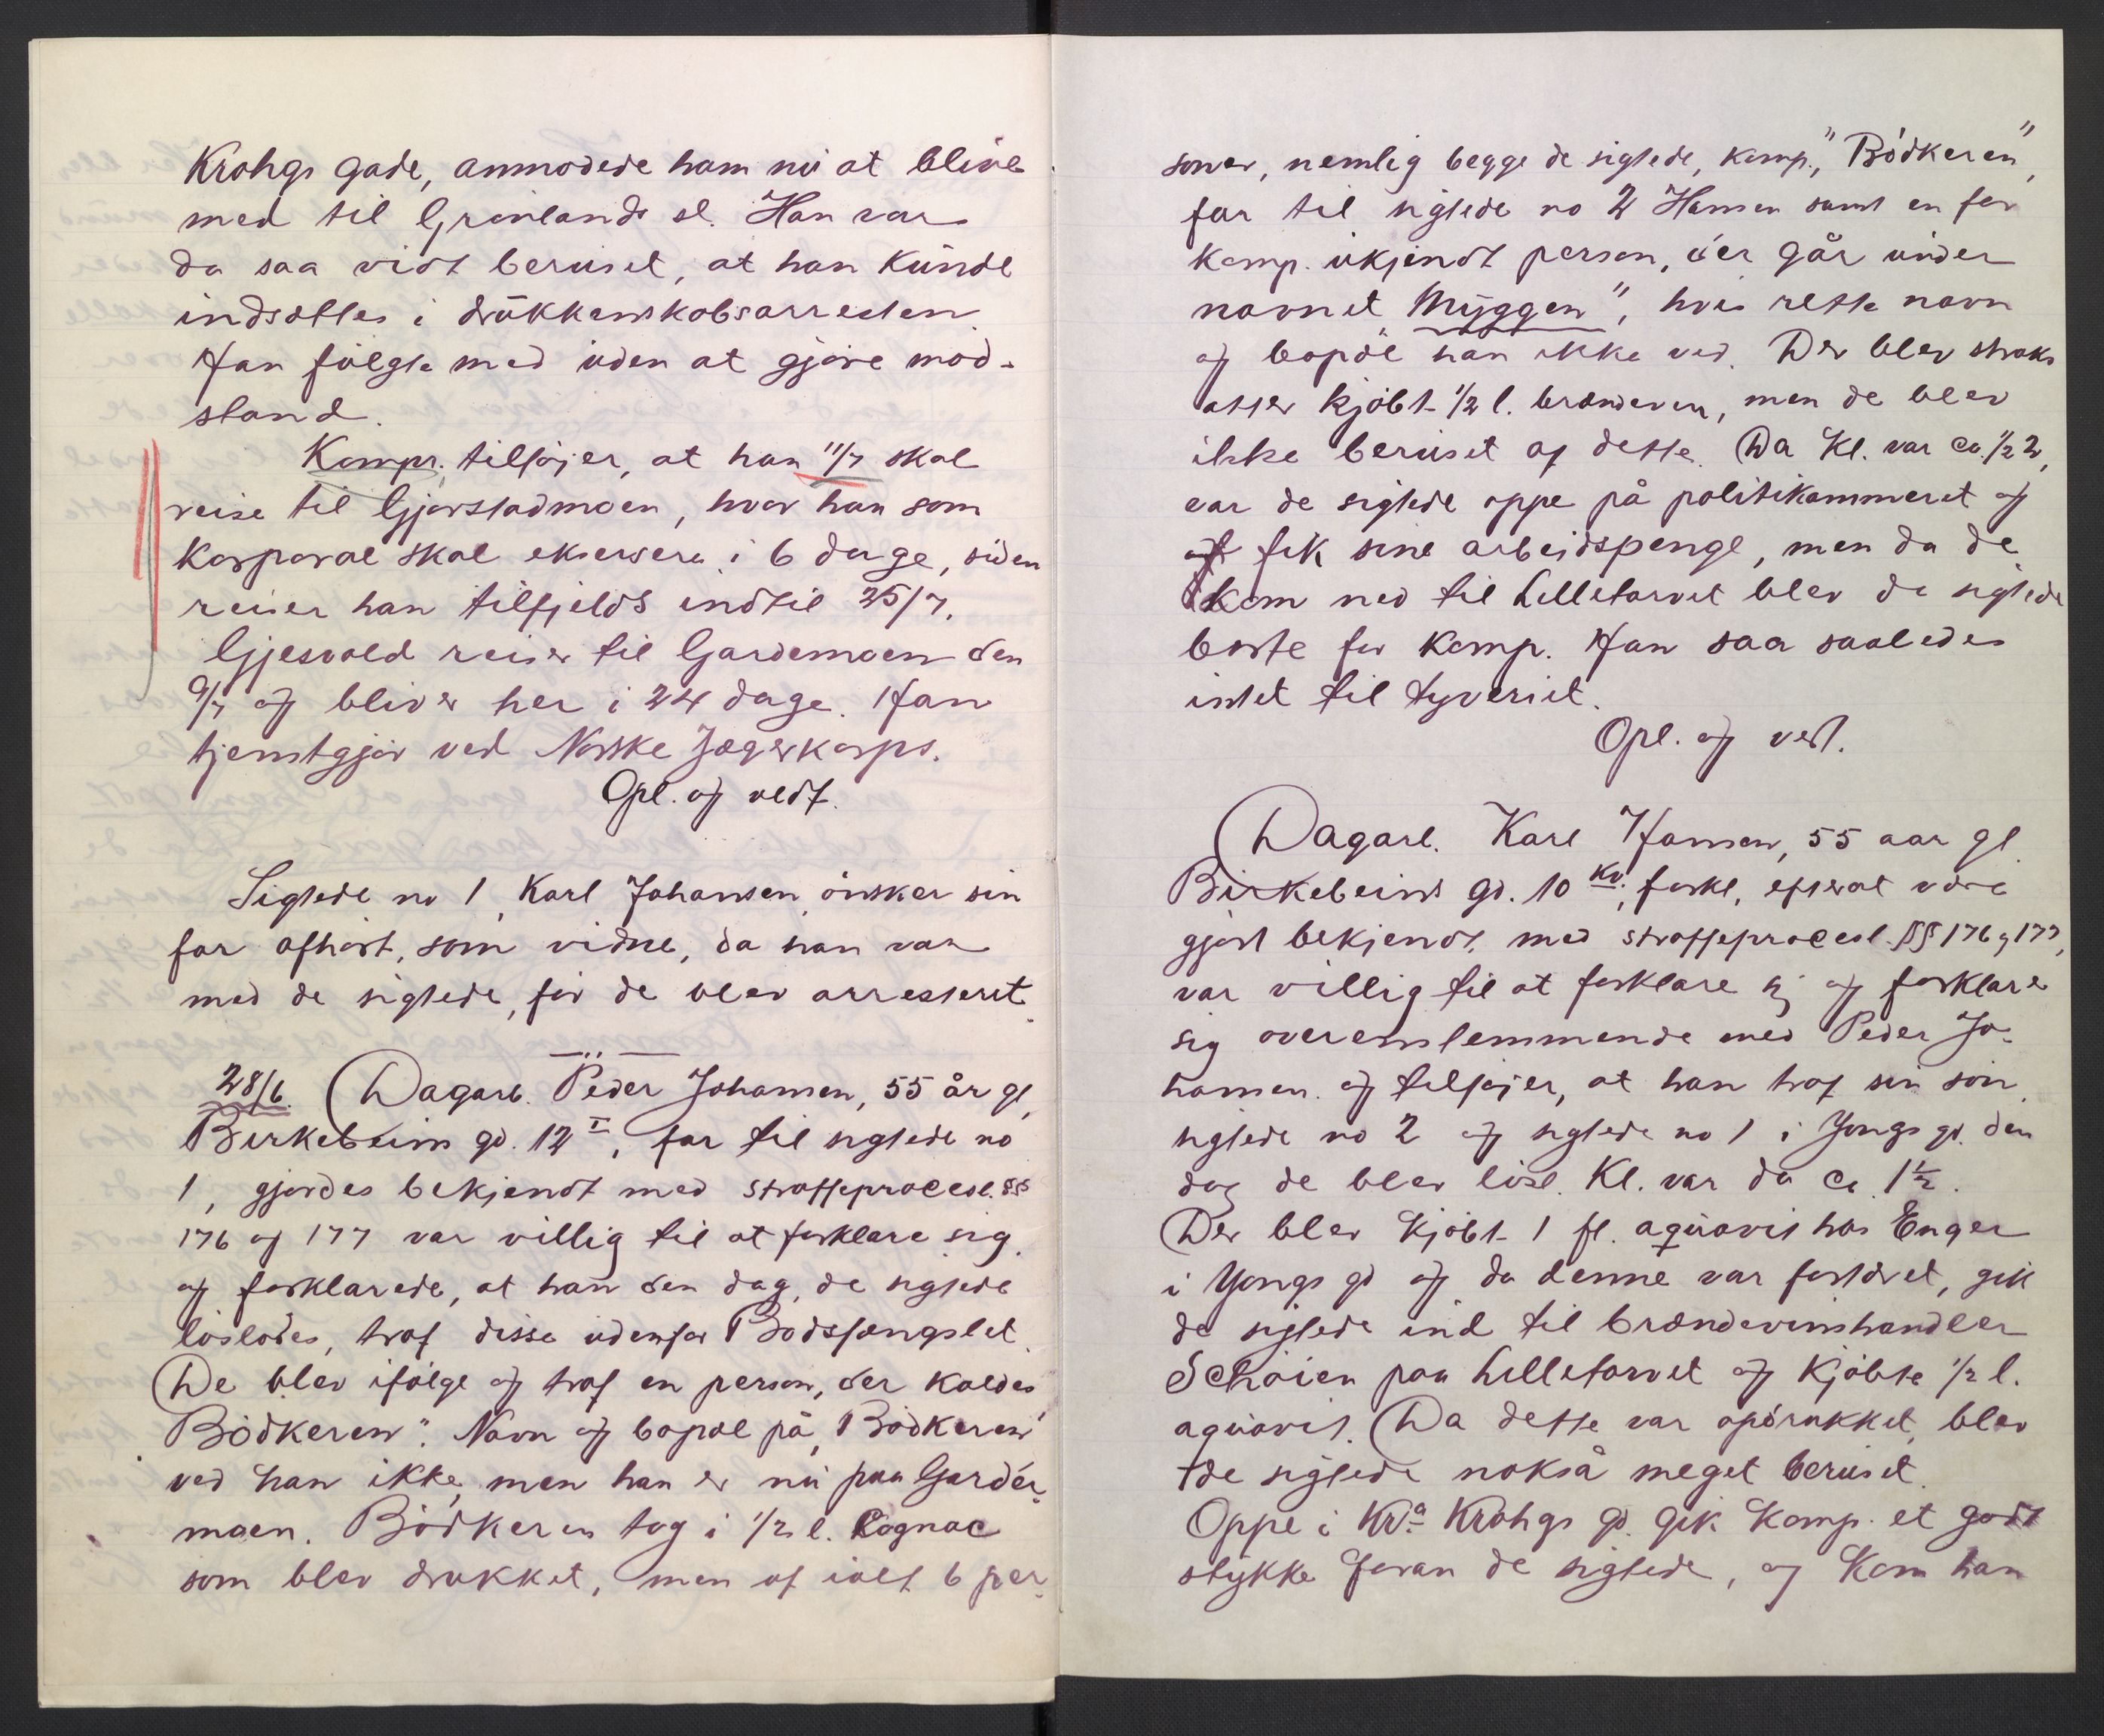 Krohgs gade, anmodede ham nu at blive
med til Grønlands st. Han var
da saa vidt beruset, at han kunde
indsættes i drukkenskabsarresten.
Han fulgte med uden at gjøre mod-
stand.
Kompr. tilføjer, at han 11/7 skal
reise til Gjørstadmoen, hvor han som
korporal skal eksersere i 6 dage, siden
reiser han tilfjelds indtil 25/7.
Gjesvold reiser til Gardemoen den
9/7 og bliver her i 24 dage. Han
tjenstgjør ved Norske Jægerkorps.
Opl. og vedt.
Sigtede no 1, Karl Johansen ønsker sin
far afhørt, som vidne, da han var
med de sigtede, før de blev arresteret.
28/6. Dagarb. Peder Johansen, 55 år gl,
Birkebeins gd. 12 I, far til sigtede no
1, gjordes bekjendt med straffeprocesl. §§
176 og 177 var villig til at forklare sig.
og forklarede, at han den dag, de sigtede
løslodes, traf disse udenfor Bodsfængslet.
De blev ifølge og traf en person, der kaldes
"Bødkeren". Navn og bopæl på "Bødkeren"
ved han ikke, men han er nu paa Garder-
moen. Bødkeren tog i 1/2 l. Cognac
som blev drukket, men af ialt 6 per-
soner, nemlig begge de sigtede, komp., "Bødkeren",
far til sigtede no 2 Hansen samt en for
komp. ukjendt person, der går under
navnet "Myggen", hvis rette navn
og bopæl han ikke ved. Der blev straks
atter kjøbt 1/2 l. brændevin, men de blev
ikke beruset af dette. Da Kl. var ca. 1/2 2,
var de sigtede oppe på politikammeret og
fik sine arbeidspenge, men da de
kom ned til Lilletorvet blev de sigtede
borte for komp. Han saa saaledes
intet til tyveriet.
Opl. og vedt.
Dagarb. Karl Hansen, 55 aar gl.
Birkebeins gd. 10 kv., forkl, efterat være
gjort bekjendt med straffeprocesl. §§ 176 og 177,
var villig til at forklare sig og forklarer
sig overenstemmende med Peder Jo-
hansen. og tilføjer, at han traf sin søn,
sigtede no 2 og sigtede no 1 i Yongs gd. den
dag de blev løsl. Kl. var da ca. 1 1/2.
Der blev kjøbt 1 fl. aquavit hos Enger
i Yongs gd og da denne var fortæret, gik
de sigtede ind til brændevinshandler
Schøien paa Lilletorvet og kjøbte 1/2 l.
aquavit. Da dette var opdrukket, blev
de sigtede nokså meget beruset.
Oppe i Kr.a Krohgs gd. gik komp. et godt
stykke foran de sigtede, og kom han